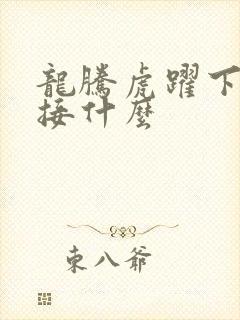 龍騰虎躍下
接什麼
東八爺